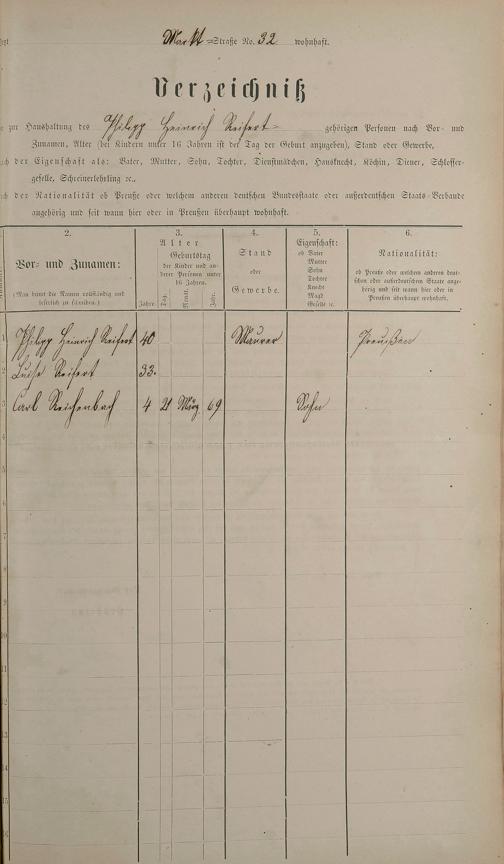 Markt=Straße No. 32 wohnhaft.
Verzeichniß
zur Haushaltung des Philipp Heinrich Reifert gehörigen Personen nach Vor- und
Zunamen, Alter (bei Kindern unter 16 Jahren ist der Tag der Geburt anzugeben), Stand oder Gewerbe,
der Eigenschaft als: Vater, Mutter, Sohn, Tochter, Dienstmädchen, Hausknecht, Köchin, Diener, Schlosser-
geselle, Schreinerlehrling ꝛc.,
der Nationalität ob Preuße oder welchem anderen deutschen Bundesstaate oder außerdeutschen Staats-Verbande
angehörig und seit wann hier oder in Preußen überhaupt wohnhaft.
2.
Vor- und Zunamen:
(Man bittet die Namen vollständig und
leserlich zu schreiben.)
3.
Alter
Geburtstag
der Kinder und an-
derer Personen unter
16 Jahren.
Jahre.
Tag.
Monat.
Jahr.
4.
Stand
oder
Gewerbe.
5.
Eigenschaft:
ob Vater
Mutter
Sohn
Tochter
Knecht
Magd
Geselle ꝛc.
6.
Nationalität:
ob Preuße oder welchem anderen deut-
schen oder außerdeutschen Staate ange-
hörig und seit wann hier oder in
Preußen überhaupt wohnhaft.
1 Philipp Heinrich Reifert 40 Maurer Preußen
2 Luise Reifert 33.
3 Carl Reichenbach 4 21 März 69 Sohn
4
5
6
7
8
9
10
11
12
13
14
15
16